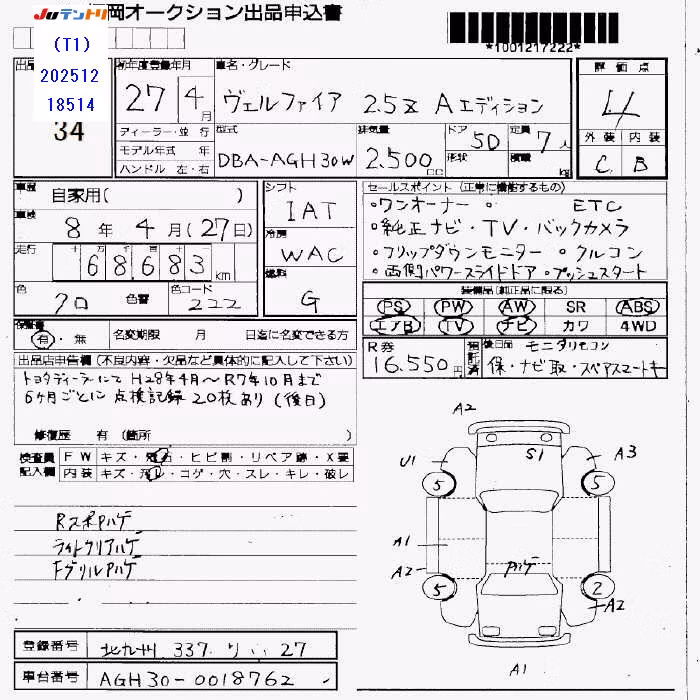 JUテントリ 岡オークション出品申込書
*1001217222*
(T1)
202512
18514
34
初年度登録年月
27 4月
ディーラー・並 行
モデル年式 年
ハンドル 左・右
車名・グレード
ヴェルファイア 2.5Z Aエディション
型式
DBA-AGH30W
排気量
2.500 cc
ドア 50
形状
定員 7人
積載 kg
評価点
4
外装 内装
C B
車歴 自家用( )
車検 8年 4月(27日)
走行 十 万 千 百 十 一
68683 km
色 クロ 色替 色コード 222
シフト IAT
冷房 WAC
燃料 G
セールスポイント (正常に機能するもの)
・ワンオーナー ・ ETC
・純正ナビ・TV・バックカメラ
・フリップダウンモニター ・クルコン
・両側パワースライドドア ・プッシュスタート
装備品(純正品に限る)
PS PW AW SR ABS
エアB TV ナビ カワ 4WD
R券 16.550円
後日品 モニタリモコン
保・ナビ取・スペアスマートキー
保証書 有・無 名変期限 月 日迄に名変できる方
出品店申告欄(不良内容・欠品など具体的に記入して下さい)
トヨタディーラーにて H28年4月～R7年10月まで
6ヶ月ごとに 点検記録 20枚あり (後日)
修復歴 有 (箇所 )
検査員 FW キズ・飛石・ヒビ割・リペア跡・X要
記入欄 内装 キズ・汚レ・コゲ・穴・スレ・キレ・破レ
Rスポハゲ
ライトクリアハゲ
Fグリルハゲ
A2
S1
U1
A3
5
5
A1
A2
ハゲ
5
2
A2
A1
登録番号 北九州 337 り ・・27
車台番号 AGH30-0018762